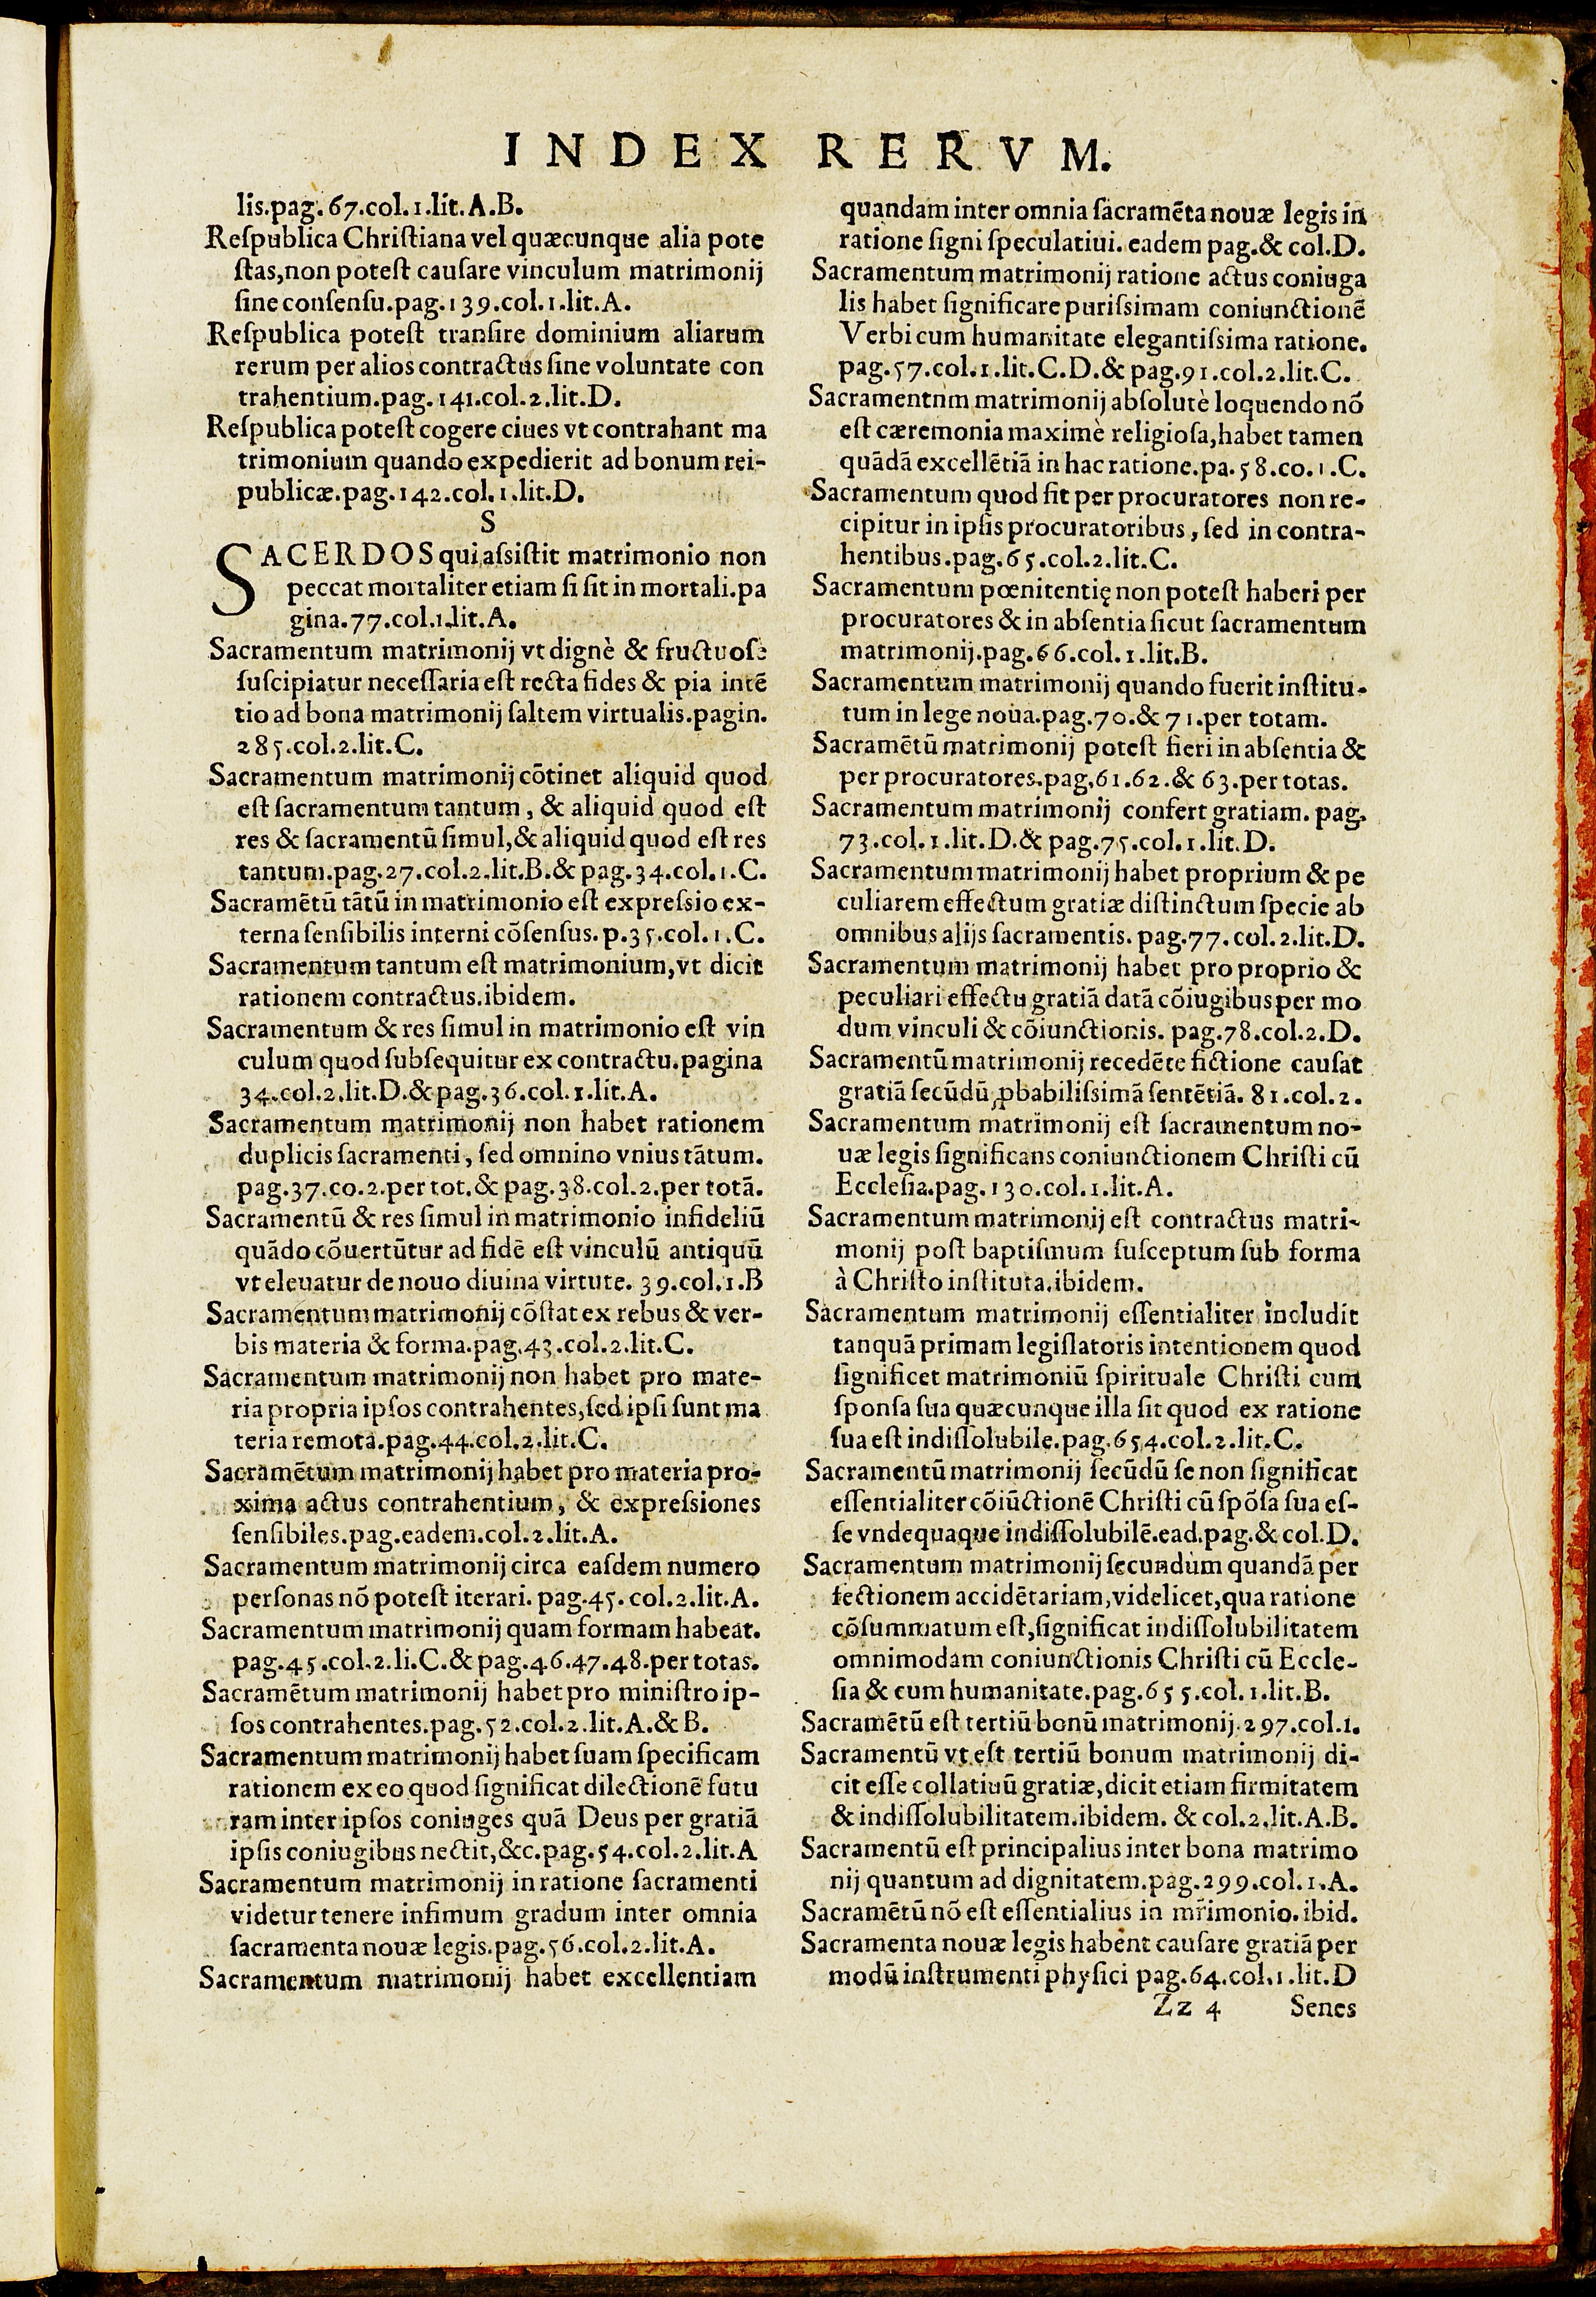 INDEX RERVM.
lis.pag.67.col.1.lit.A.B.
Reſpublica Chriſtiana vel quæcunque alia pote
ſtas,non poteſt cauſare vinculum matrimonij
ſine conſenſu.pag.139.col.1.lit.A.
Reſpublica poteſt tranſire dominium aliarum
rerum per alios contractus ſine voluntate con
trahentium.pag.141.col.2.lit.D.
Reſpublica poteſt cogere ciues vt contrahant ma
trimonium quando expedierit ad bonum rei-
publicæ.pag.142.col.1.lit.D.
S
SACERDOS qui aſsiſtit matrimonio non
peccat mortaliter etiam ſi ſit in mortali.pa
gina.77.col.1.lit.A.
Sacramentum matrimonij vt dignè & fructuoſè
ſuſcipiatur neceſſaria eſt recta fides & pia intē
tio ad bona matrimonij ſaltem virtualis.pagin.
285.col.2.lit.C.
Sacramentum matrimonij cōtinet aliquid quod
eſt ſacramentum tantum, & aliquid quod eſt
res & ſacramentū ſimul,& aliquid quod eſt res
tantum.pag.27.col.2.lit.B.& pag.34.col.1.C.
Sacramētū tātū in matrimonio eſt expreſsio ex-
terna ſenſibilis interni cōſenſus. p.35.col.1.C.
Sacramentum tantum eſt matrimonium,vt dicit
rationem contractus.ibidem.
Sacramentum & res ſimul in matrimonio eſt vin
culum quod ſubſequitur ex contractu.pagina
34.col.2.lit.D.& pag.36.col.1.lit.A.
Sacramentum matrimonij non habet rationem
duplicis ſacramenti, ſed omnino vnius tātum.
pag.37.co.2.per tot.& pag.38.col.2.per totā.
Sacramentū & res ſimul in matrimonio infideliū
quādo cōuertūtur ad fidē eſt vinculū antiquū
vt eleuatur de nouo diuina virtute. 39.col.1.B
Sacramentum matrimonij cōſtat ex rebus & ver-
bis materia & forma.pag.43.col.2.lit.C.
Sacramentum matrimonij non habet pro mate-
ria propria ipſos contrahentes,ſed ipſi ſunt ma
teria remota.pag.44.col.2.lit.C.
Sacramētum matrimonij habet pro materia pro-
xima actus contrahentium, & expreſsiones
ſenſibiles.pag.eadem.col.2.lit.A.
Sacramentum matrimonij circa eaſdem numero
perſonas nō poteſt iterari. pag.45. col.2.lit.A.
Sacramentum matrimonij quam formam habeat.
pag.45.col.2.li.C.& pag.46.47.48.per totas.
Sacramētum matrimonij habet pro miniſtro ip-
ſos contrahentes.pag.52.col.2.lit.A.& B.
Sacramentum matrimonij habet ſuam ſpecificam
rationem ex eo quod ſignificat dilectionē futu
ram inter ipſos coniuges quā Deus per gratiā
ipſis coniugibus nectit,&c.pag.54.col.2.lit.A
Sacramentum matrimonij in ratione ſacramenti
videtur tenere infimum gradum inter omnia
ſacramenta nouæ legis.pag.56.col.2.lit.A.
Sacramentum matrimonij habet excellentiam
quandam inter omnia ſacramēta nouæ legis in
ratione ſigni ſpeculatiui. eadem pag.& col.D.
Sacramentum matrimonij ratione actus coniuga
lis habet ſignificare puriſsimam coniunctionē
Verbi cum humanitate elegantiſsima ratione.
pag.57.col.1.lit.C.D.& pag.91.col.2.lit.C.
Sacramentnm matrimonij abſolutè loquendo nō
eſt cæremonia maximè religioſa,habet tamen
quādā excellētiā in hac ratione.pa.58.co.1.C.
Sacramentum quod fit per procuratores non re-
cipitur in ipſis procuratoribus, ſed in contra-
hentibus.pag.65.col.2.lit.C.
Sacramentum pœnitentię non poteſt haberi per
procuratores & in abſentia ſicut ſacramentum
matrimonij.pag.66.col.1.lit.B.
Sacramentum matrimonij quando fuerit inſtitu-
tum in lege noua.pag.70.& 71.per totam.
Sacramētū matrimonij poteſt fieri in abſentia &
per procuratores.pag.61.62.& 63.per totas.
Sacramentum matrimonij confert gratiam. pag.
73.col.1.lit.D.& pag.75.col.1.lit.D.
Sacramentum matrimonij habet proprium & pe
culiarem effectum gratiæ diſtinctum ſpecie ab
omnibus alijs ſacramentis. pag.77.col.2.lit.D.
Sacramentum matrimonij habet pro proprio &
peculiari effectu gratiā datā cōiugibus per mo
dum vinculi & cōiunctionis. pag.78.col.2.D.
Sacramentū matrimonij recedēte fictione cauſat
gratiā ſecūdū ꝓbabiliſsimā ſentētiā. 81.col.2.
Sacramentum matrimonij eſt ſacramentum no-
uæ legis ſignificans coniunctionem Chriſti cū
Eccleſia.pag.130.col.1.lit.A.
Sacramentum matrimonij eſt contractus matri-
monij poſt baptiſmum ſuſceptum ſub forma
à Chriſto inſtituta.ibidem.
Sacramentum matrimonij eſſentialiter includit
tanquā primam legiſlatoris intentionem quod
ſignificet matrimoniū ſpirituale Chriſti cum
ſponſa ſua quæcunque illa ſit quod ex ratione
ſua eſt indiſſolubile.pag.654.col.2.lit.C.
Sacramentū matrimonij ſecūdū ſe non ſignificat
eſſentialiter cōiūctionē Chriſti cū ſpōſa ſua eſ-
ſe vndequaque indiſſolubilē.ead.pag.& col.D.
Sacramentum matrimonij ſecundùm quandā per
fectionem accidētariam,videlicet,qua ratione
cōſummatum eſt,ſignificat indiſſolubilitatem
omnimodam coniunctionis Chriſti cū Eccle-
ſia & cum humanitate.pag.655.col.1.lit.B.
Sacramētū eſt tertiū bonū matrimonij.297.col.1.
Sacramentū vt eſt tertiū bonum matrimonij di-
cit eſſe collatiuū gratiæ,dicit etiam firmitatem
& indiſſolubilitatem.ibidem. & col.2.lit.A.B.
Sacramentū eſt principalius inter bona matrimo
nij quantum ad dignitatem.pag.299.col.1.A.
Sacramētū nō eſt eſſentialius in mr̄imonio.ibid.
Sacramenta nouæ legis habent cauſare gratiā per
modū inſtrumenti phyſici pag.64.col.1.lit.D
Zz 4 Senes